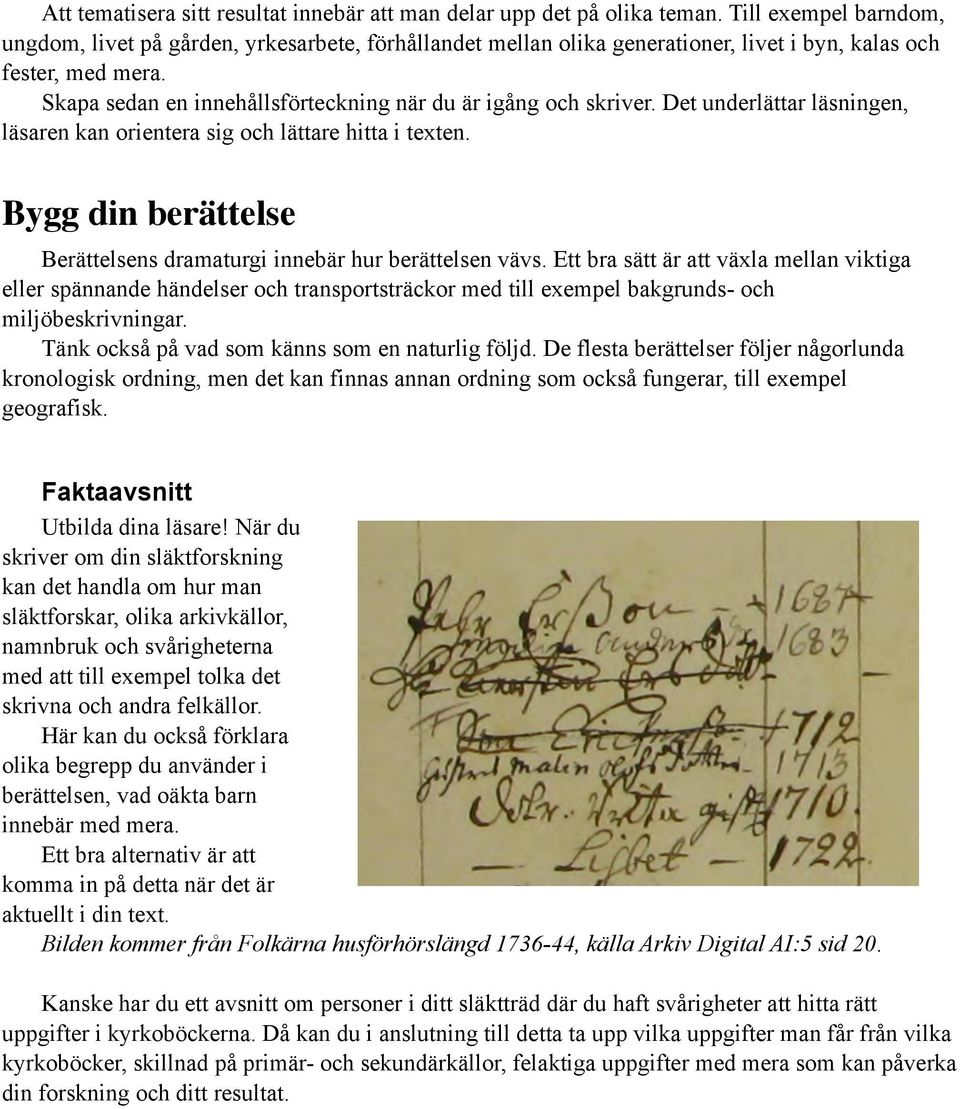 Att tematisera sitt resultat innebär att man delar upp det på olika teman. Till exempel barndom,
ungdom, livet på gården, yrkesarbete, förhållandet mellan olika generationer, livet i byn, kalas och
fester, med mera.
Skapa sedan en innehållsförteckning när du är igång och skriver. Det underlättar läsningen,
läsaren kan orientera sig och lättare hitta i texten.
Bygg din berättelse
Berättelsens dramaturgi innebär hur berättelsen vävs. Ett bra sätt är att växla mellan viktiga
eller spännande händelser och transportsträckor med till exempel bakgrunds- och
miljöbeskrivningar.
Tänk också på vad som känns som en naturlig följd. De flesta berättelser följer någorlunda
kronologisk ordning, men det kan finnas annan ordning som också fungerar, till exempel
geografisk.
Faktaavsnitt
Utbilda dina läsare! När du
skriver om din släktforskning
kan det handla om hur man
släktforskar, olika arkivkällor,
namnbruk och svårigheterna
med att till exempel tolka det
skrivna och andra felkällor.
Här kan du också förklara
olika begrepp du använder i
berättelsen, vad oäkta barn
innebär med mera.
Ett bra alternativ är att
komma in på detta när det är
aktuellt i din text.
Pehr Erßon - + 1687
anders 1683
1712
Malin olofs dotter 1713
Brita gift 1710.
— Lisbet — 1722
Bilden kommer från Folkärna husförhörslängd 1736-44, källa Arkiv Digital AI:5 sid 20.
Kanske har du ett avsnitt om personer i ditt släktträd där du haft svårigheter att hitta rätt
uppgifter i kyrkoböckerna. Då kan du i anslutning till detta ta upp vilka uppgifter man får från vilka
kyrkoböcker, skillnad på primär- och sekundärkällor, felaktiga uppgifter med mera som kan påverka
din forskning och ditt resultat.